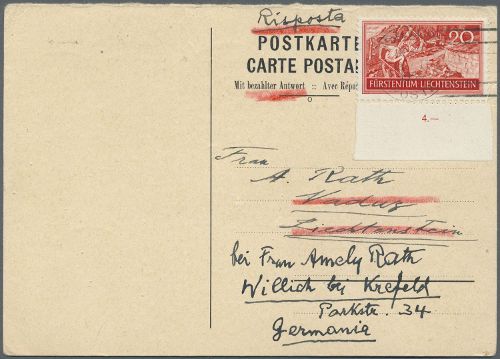 Risposta
POSTKARTE
CARTE POSTA
Mit bezahlter Antwort :: Avec Répo
20
FÜRSTENTUM LIECHTENSTEIN
4.—
Frau
A. Rath
Vaduz
Liechtenstein
bei Frau Amely Rath
Willich bei Krefeld
Parkstr. 34
Germania